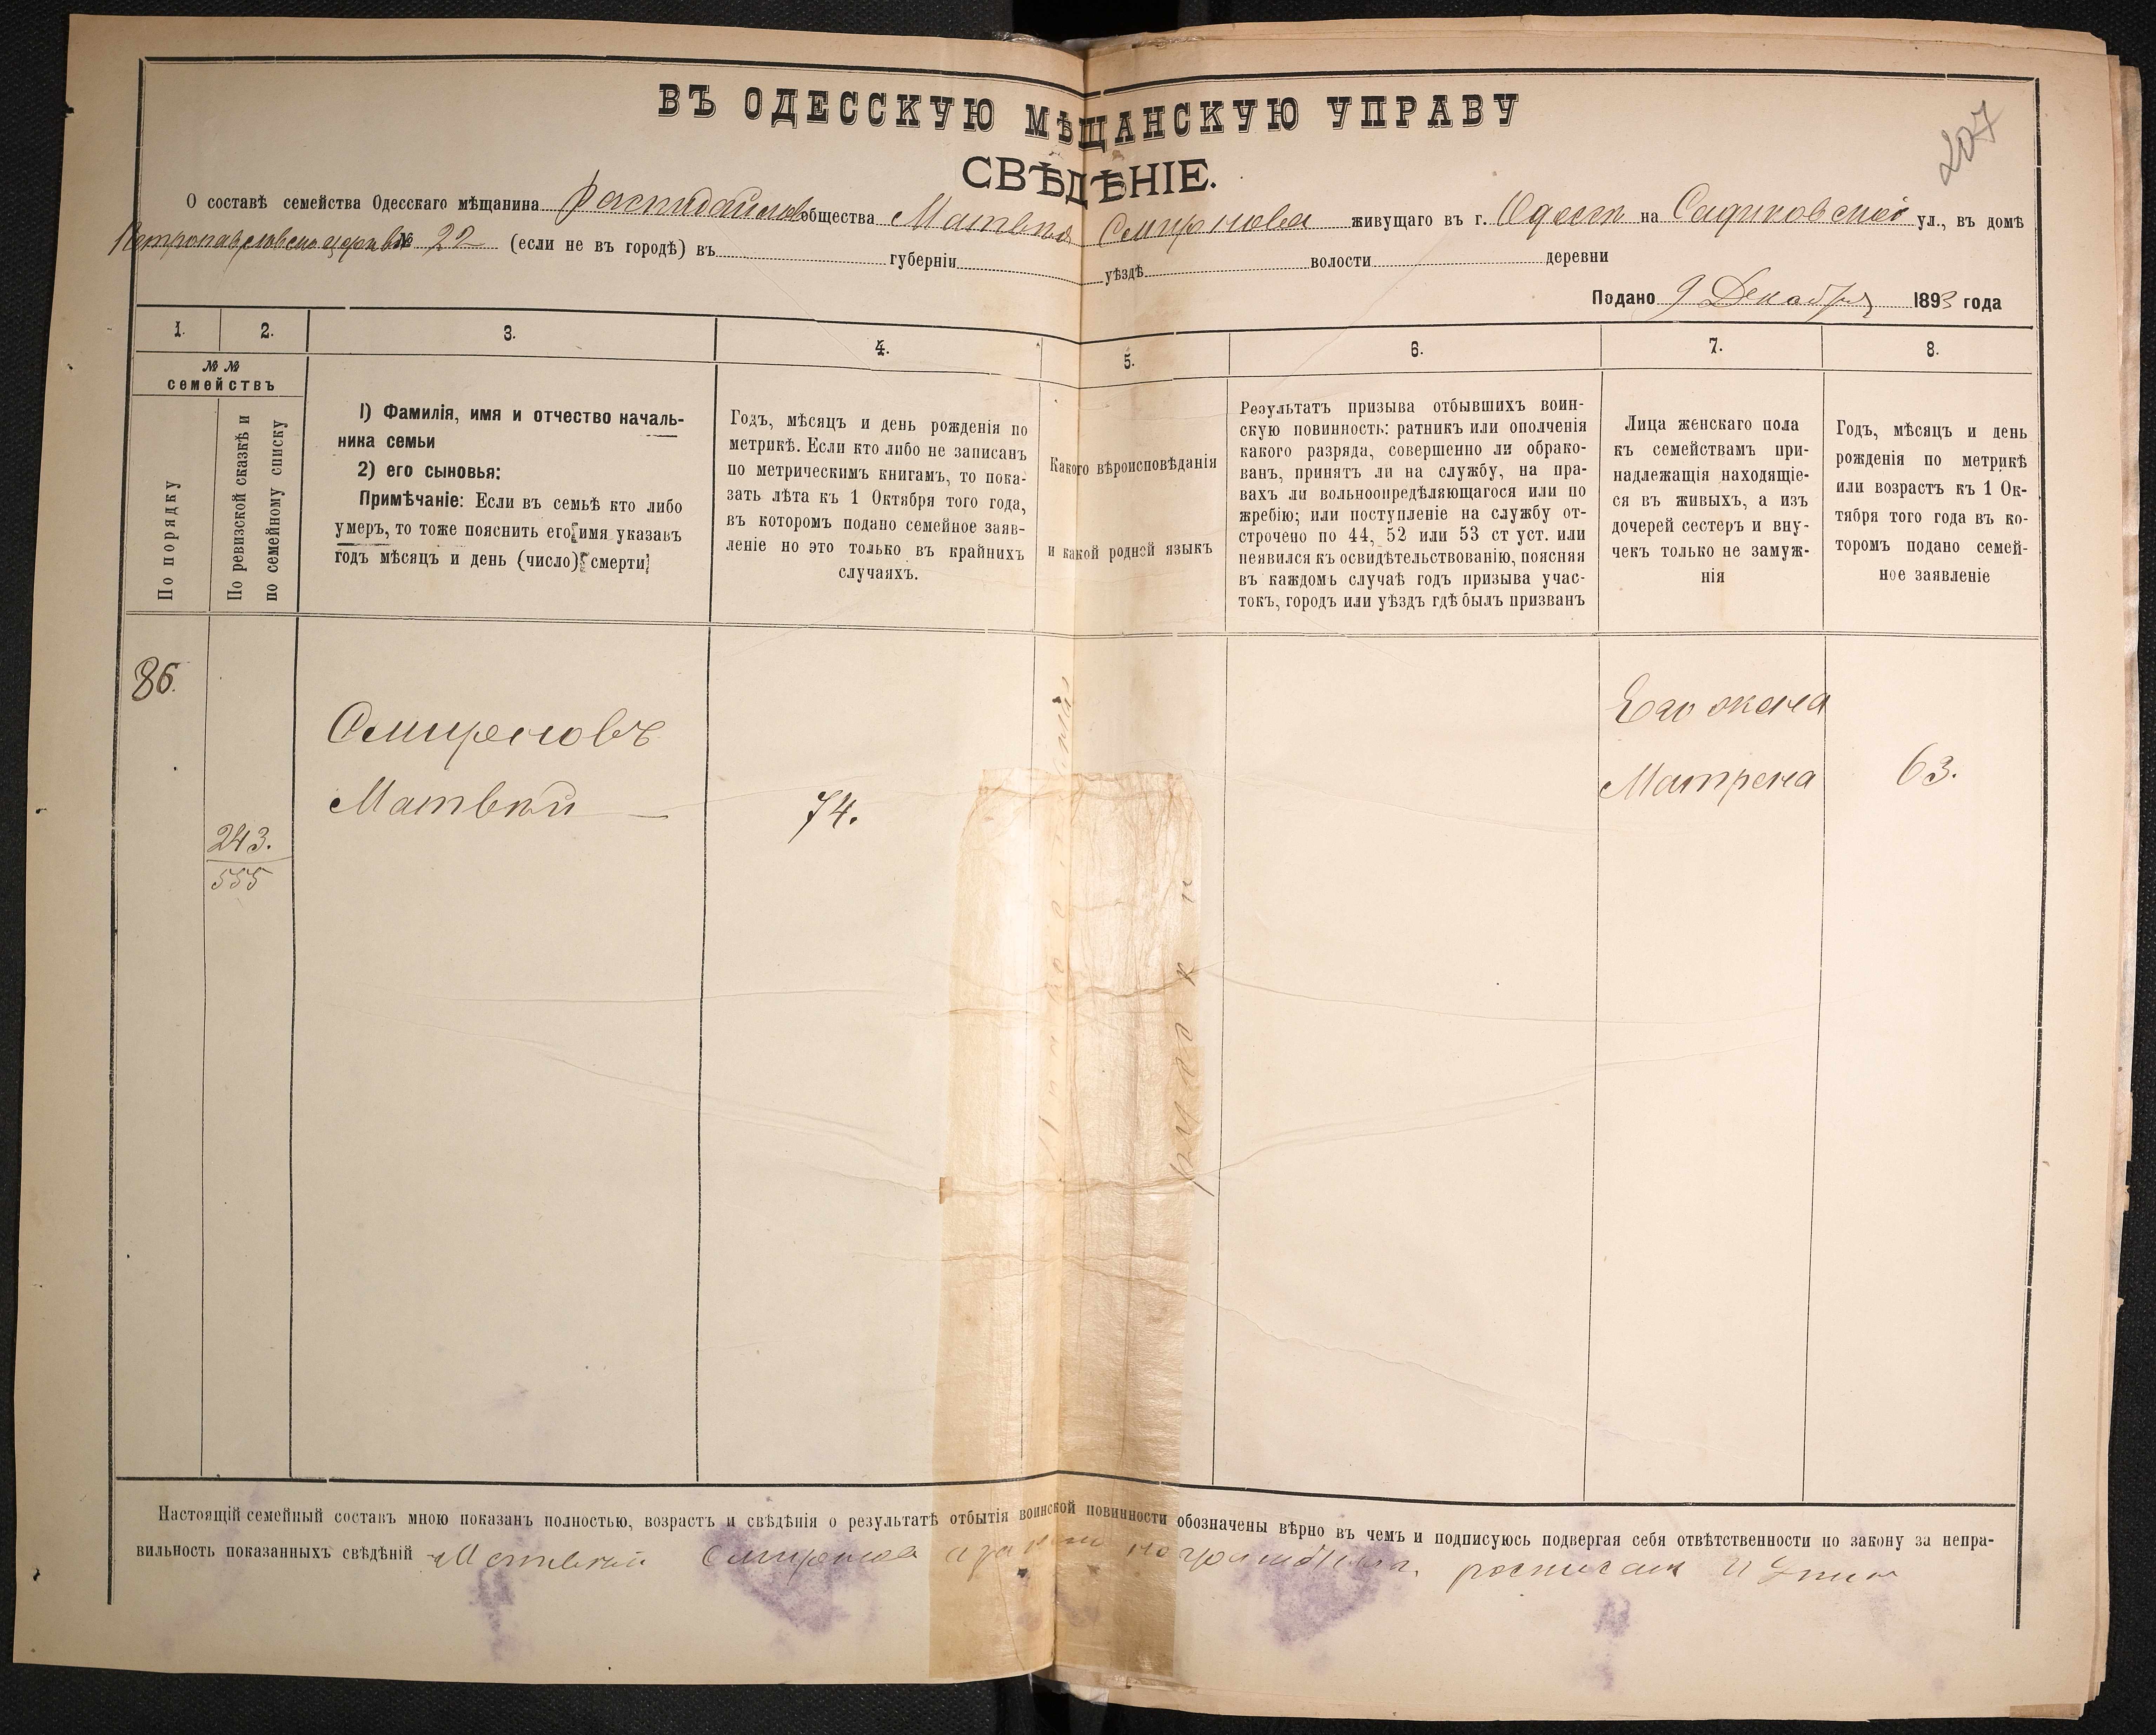 207
ВЪ ОДЕССКУЮ МѢЩАНСКУЮ УПРАВУ
СВѢДѢНІЕ.
О составѣ семейства Одесскаго мѣщанина общества Матвѣя Смирнова живущаго въ г. Одессѣ на Садиковской ул., въ домѣ
Петропавловской церкви № 22 (если не въ городѣ) въ губерніи уѣздѣ волости деревни
Подано 9 Декабря 1893 года
1. 2. 3. 4. 5. 6. 7. 8.
№ №
семействъ
По порядку
По ревизской сказкѣ и
по семейному списку
1) Фамилія, имя и отчество началь-
ника семьи
2) его сыновья:
Примѣчаніе: Если въ семьѣ кто либо
умеръ, то тоже пояснить его имя указавъ
годъ мѣсяцъ и день (число) смерти
Годъ, мѣсяцъ и день рожденія по
метрикѣ. Если кто либо не записанъ
по метрическимъ книгамъ, то пока-
зать лѣта къ 1 Октября того года,
въ которомъ подано семейное заяв-
леніе но это только въ крайнихъ
случаяхъ.
Какого вѣроисповѣданія
и какой родной языкъ
Результатъ призыва отбывшихъ воин-
скую повинность: ратникъ или ополченія
какого разряда, совершенно ли обрако-
ванъ, принятъ ли на службу, на пра-
вахъ ли вольноопредѣляющагося или по
жребію; или поступленіе на службу от-
строчено по 44, 52 или 53 ст уст. или
неявился къ освидѣтельствованію, поясняя
въ каждомъ случаѣ годъ призыва учас-
токъ, городъ или уѣздъ гдѣ былъ призванъ
Лица женскаго пола
къ семействамъ при-
надлежащія находящіе-
ся въ живыхъ, а изъ
дочерей сестеръ и вну-
чекъ только не замуж-
нія
Годъ, мѣсяцъ и день
рожденія по метрикѣ
или возрастъ къ 1 Ок-
тября того года въ ко-
торомъ подано семей-
ное заявленіе
86.
243.
555
Смирновъ
Матвѣй
74.
Его жена
Матрена
63.
Настоящій семейный составъ мною показанъ полностью, возрастъ и свѣдѣнія о результатѣ отбытія воинской повинности обозначены вѣрно въ чемъ и подписуюсь подвергая себя отвѣтственности по закону за непра-
вильность показанныхъ свѣдѣній Матвей Смирнов